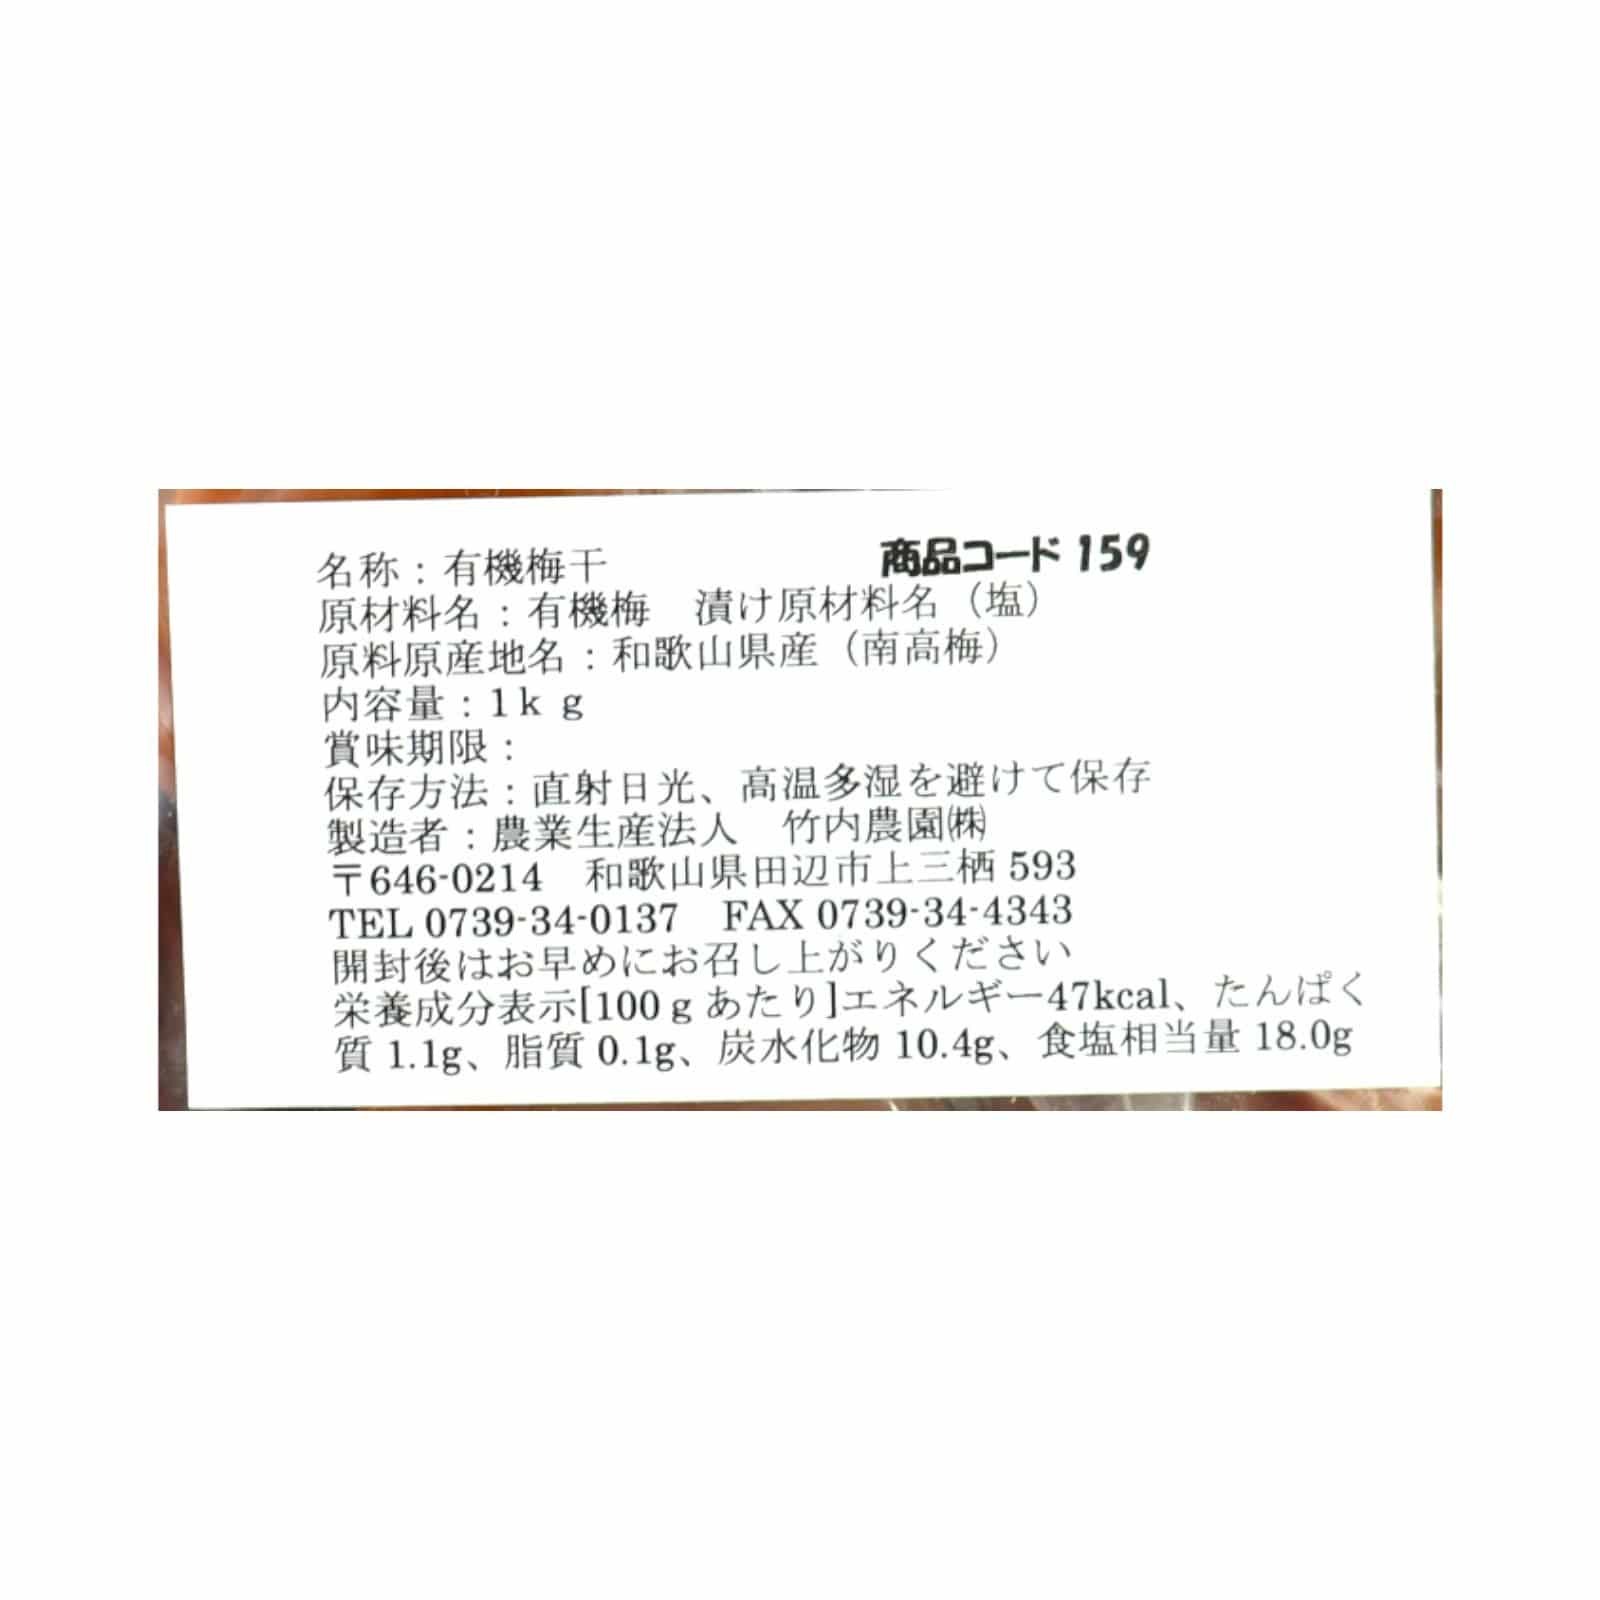 名称：有機梅干　商品コード 159
原材料名：有機梅　漬け原材料名（塩）
原料原産地名：和歌山県産（南高梅）
内容量：1ｋｇ
賞味期限：
保存方法：直射日光、高温多湿を避けて保存
製造者：農業生産法人　竹内農園㈱
〒646-0214　和歌山県田辺市上三栖 593
TEL 0739-34-0137　FAX 0739-34-4343
開封後はお早めにお召し上がりください
栄養成分表示[100ｇあたり]エネルギー47kcal、たんぱく
質 1.1g、脂質 0.1g、炭水化物 10.4g、食塩相当量 18.0g